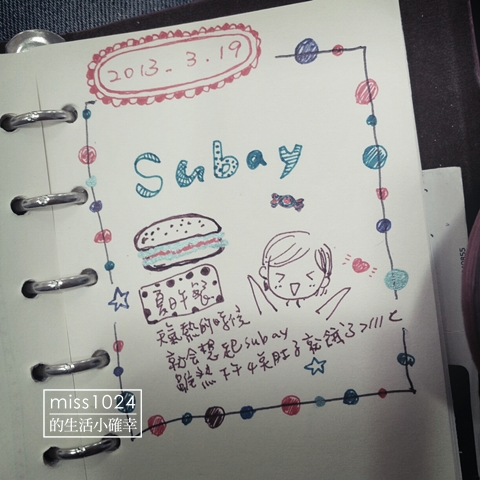 2013.3.19
Subay
夏日午餐
天氣熱的時候
就会想起subay
雖然下午4英肚子就餓了>///<
miss1024
的生活小確幸